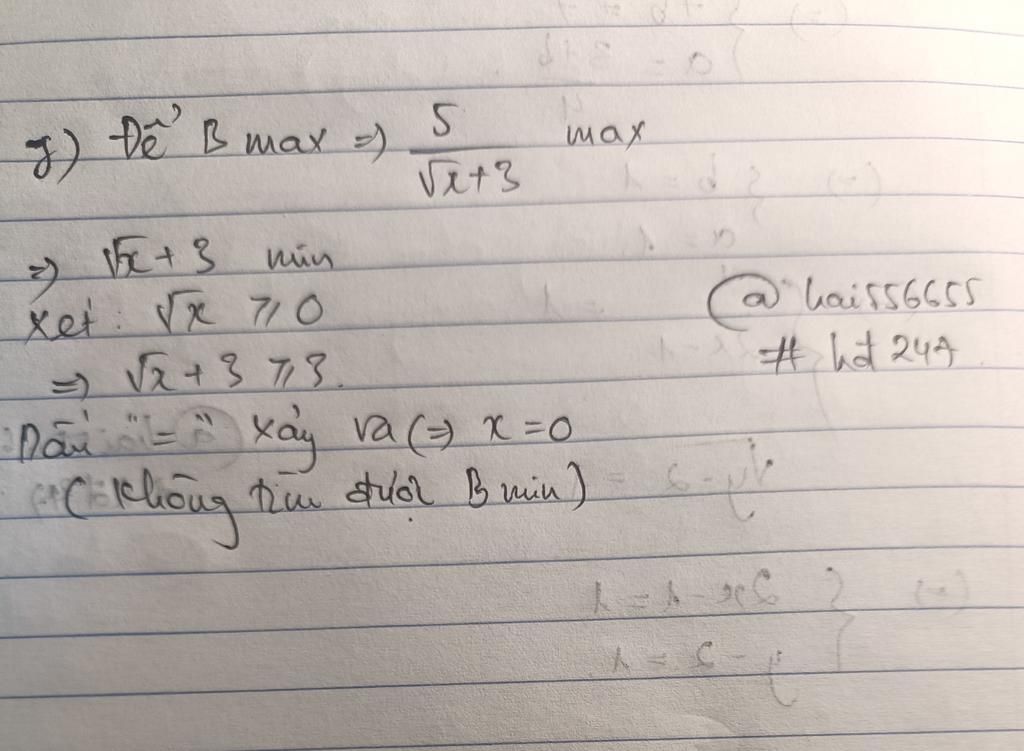 g) Để B max => 5/(√x+3) max
=> √x + 3 min
xét: √x ⩾ 0
=> √x + 3 ⩾ 3.
Dấu "=" xảy ra <=> x = 0
(Không tìm được B min)
@hai556655
# hd 247